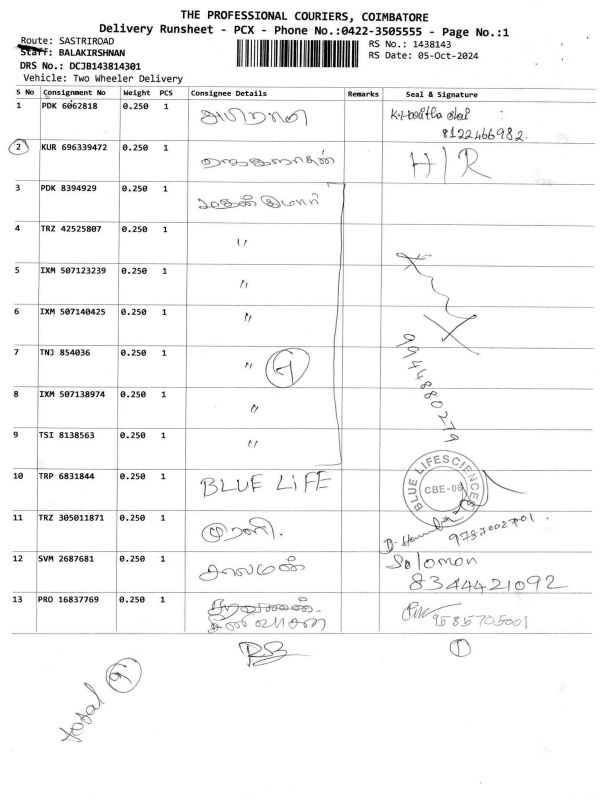 THE PROFESSIONAL COURIERS, COIMBATORE
Delivery Runsheet - PCX - Phone No.:0422-3505555 - Page No.:1
Route: SASTRIROAD
RS No.: 1438143
Staff: BALAKIRSHNAN
RS Date: 05-Oct-2024
DRS No.: DCJB143814301
Vehicle: Two Wheeler Delivery
S No Consignment No Weight PCS Consignee Details Remarks Seal & Signature
1 PDK 6062818 0.250 1 அபிராமி
8122466982.
2 KUR 696339472 0.250 1 H/R
3 PDK 8394929 0.250 1 மதன் குமார்
4 TRZ 42525807 0.250 1 "
5 IXM 507123239 0.250 1 "
6 IXM 507140425 0.250 1 "
7 TNJ 854036 0.250 1 " 7
9944880279
8 IXM 507138974 0.250 1 "
9 TSI 8138563 0.250 1 "
10 TRP 6831844 0.250 1 BLUE LIFE BLUE LIFESCIENCES CBE-06
11 TRZ 305011871 0.250 1 ராணி.
9787002701
12 SVM 2687681 0.250 1 சாலமன் Solomon
8344421092
13 PRO 16837769 0.250 1 சரவணன்.
9585705001
1
total 9